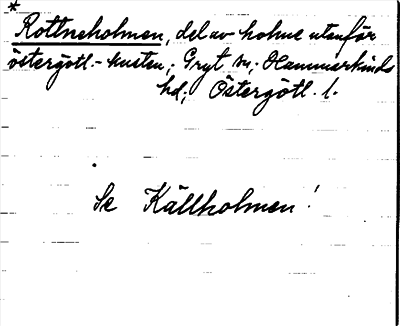 *
Rottneholmen, del av holme utanför
östergötl.-kusten; Gryt sn; Hammarkinds
hd; Östergötl. l.
Se Källholmen!